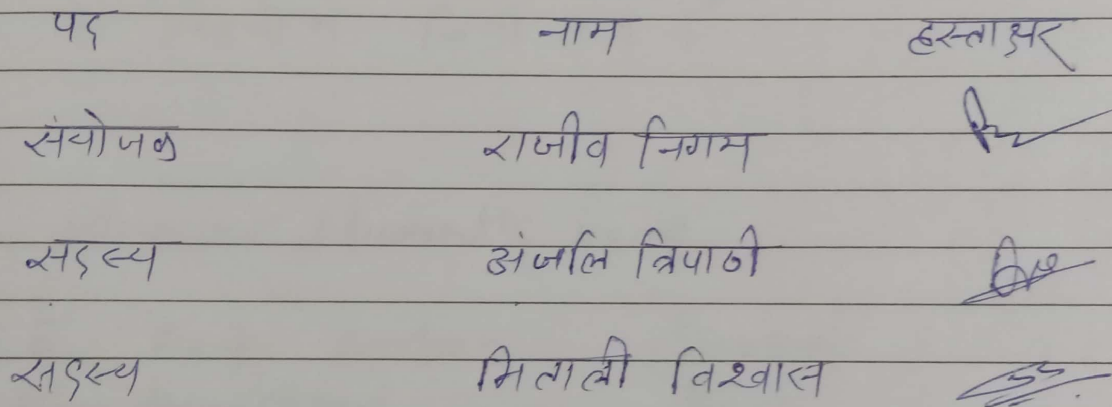 पद नाम हस्ताक्षर
संयोजक राजीव निगम
सदस्य अंजलि त्रिपाठी
सदस्य मिताली विश्वास